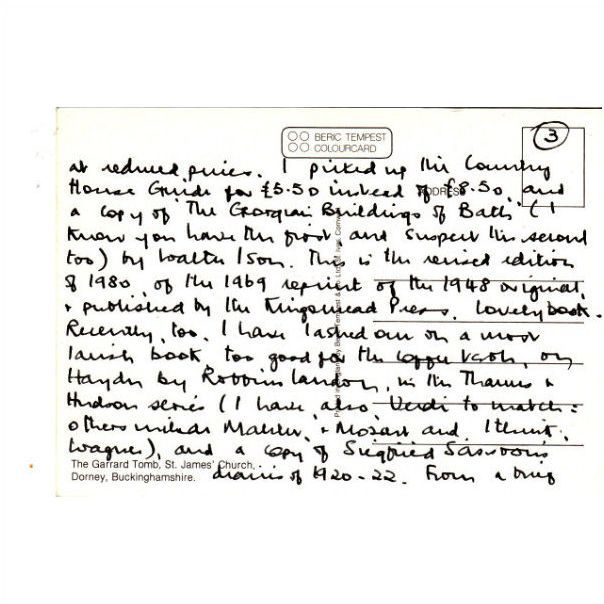 BERIC TEMPEST
COLOURCARD
3
at reduced prices. I picked up the Country
House Guide for £5.50 instead of £8.50, and
ADDRESS
a copy of 'The Georgian Buildings of Bath' (I
know you have the first, and suspect the second
too) by Walter Ison. This is the revised edition
of 1980, of the 1969 reprint of the 1948 original,
& published by the Kingsmead Press. Lovely book.
Recently, too, I have lashed out on a most
lavish book, too good for the coffee table, on
Haydn by Robbins Landon, in the Thames &
Hudson series (I have also Verdi to match:
others include Mahler, & Mozart and, I think,
Wagner), and a copy of Siegfried Sassoon's
diaries of 1920-22. From a
The Garrard Tomb, St. James' Church,
Dorney, Buckinghamshire.